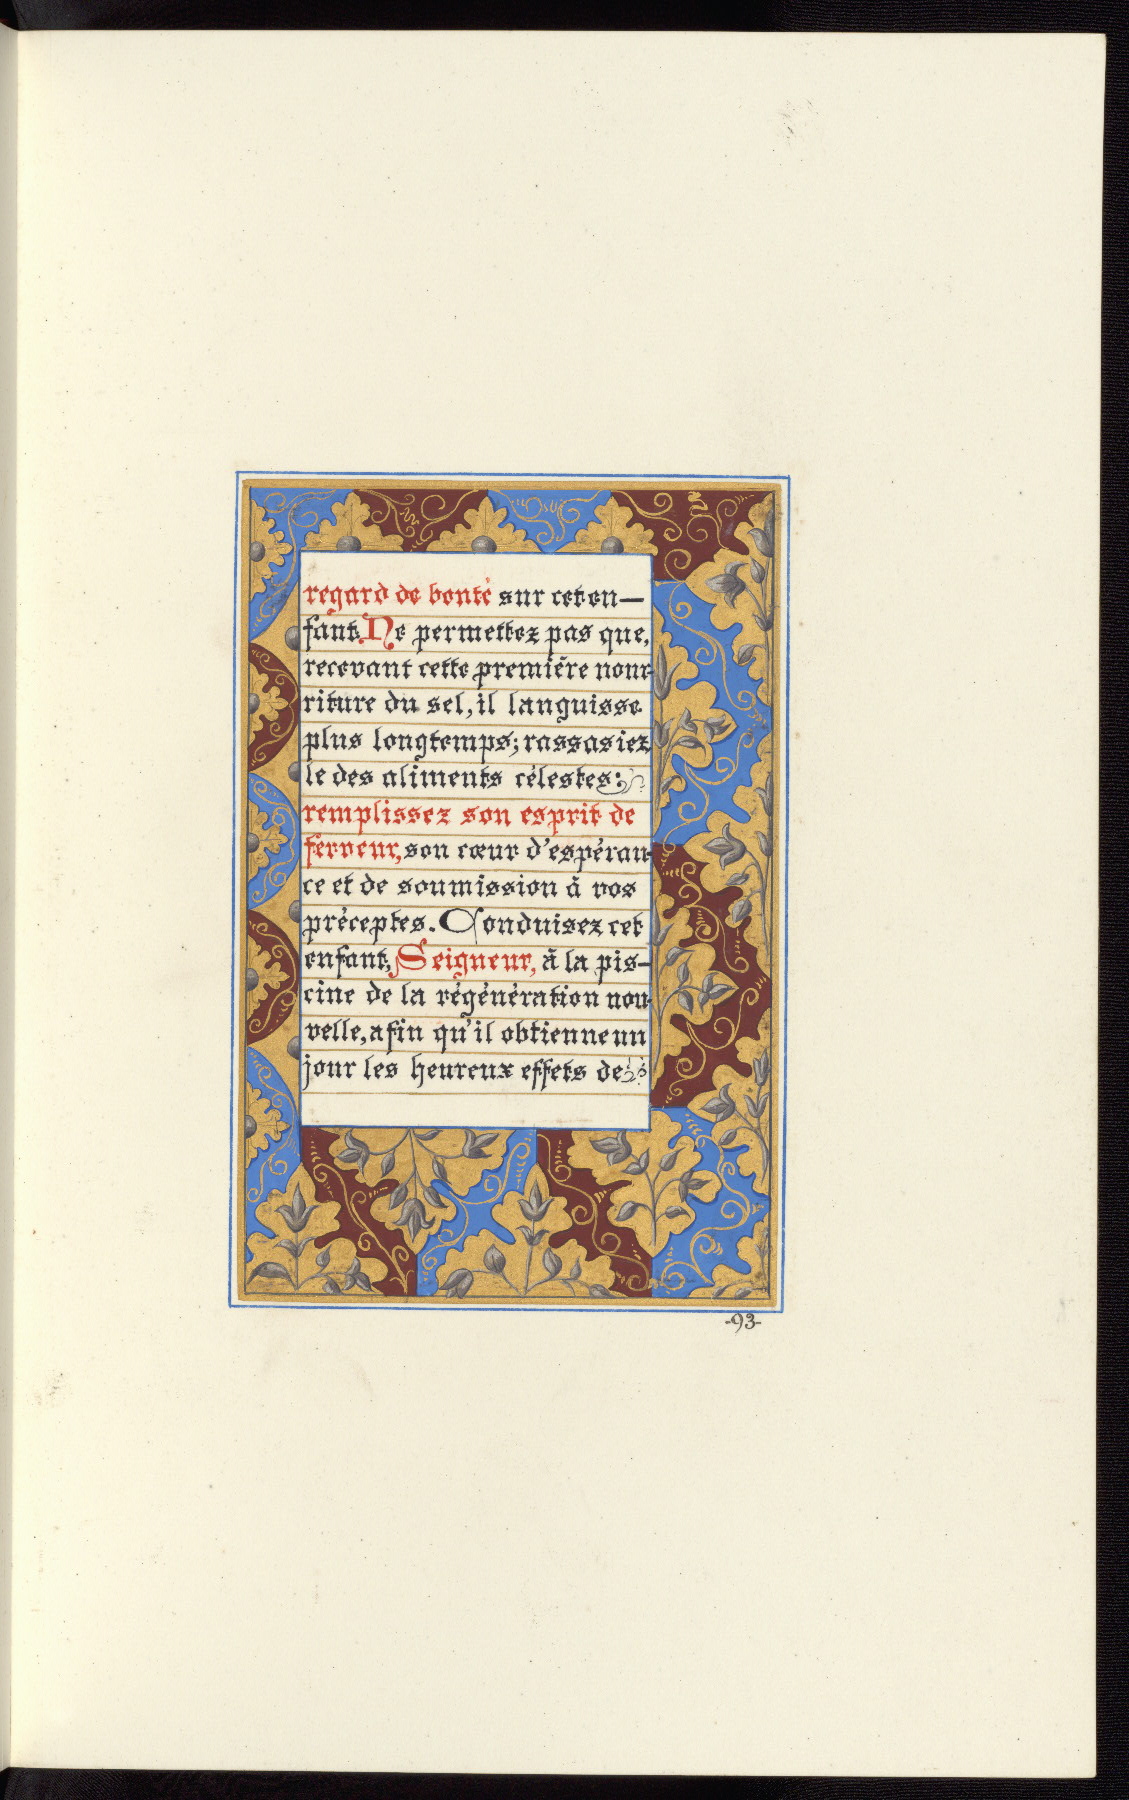 regard de bonté sur cet en—
fant. Ne permettez pas que,
recevant cette première nour-
riture du sel, il languisse
plus longtemps; rassasiez
le des aliments célestes:
remplissez son esprit de
ferveur, son cœur d'espéran-
ce et de soumission à vos
préceptes. Conduisez cet
enfant, Seigneur, à la pis—
cine de la régénération nou-
velle, afin qu'il obtienne un
jour les heureux effets de
-93-